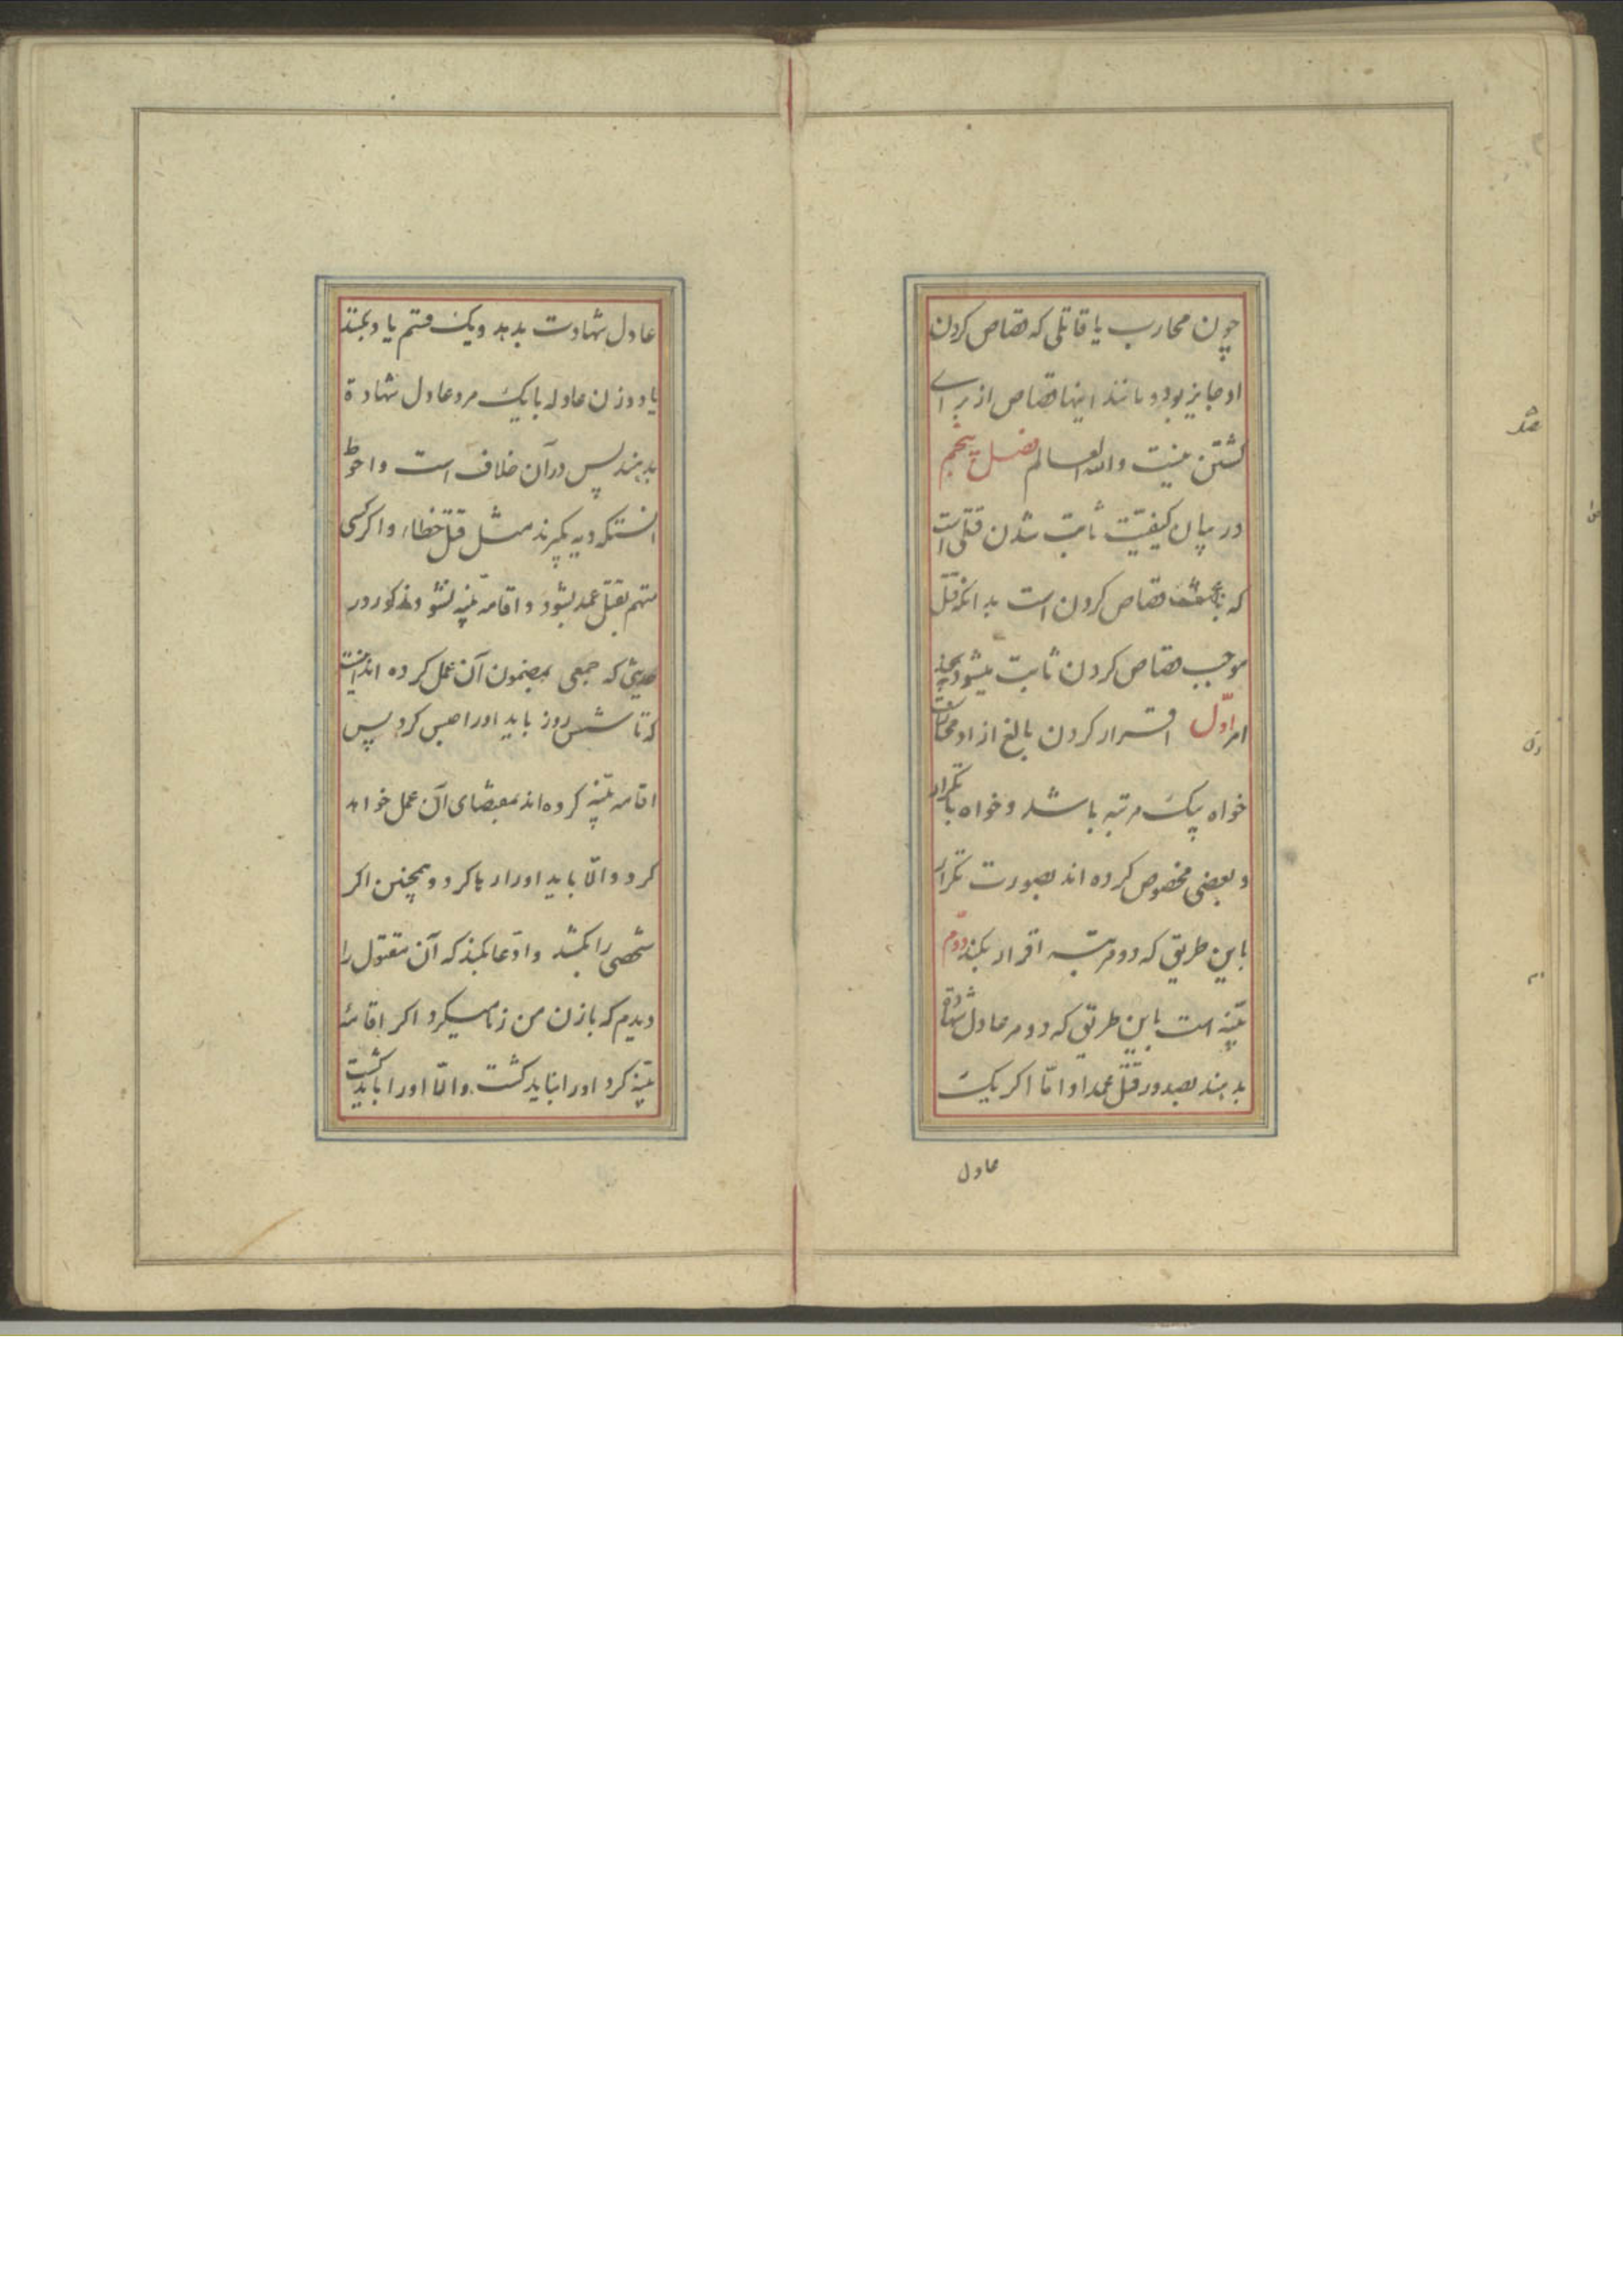 چون محارب یا قاتلی که قصاص کردن
او جایز بود و مانند اینها قصاص از برای
کشتن نیست والله العالم فصل پنجم
در بیان کیفیّت ثابت شدن قتلی است
که باعث قصاص کردن است بدانکه قتل
موجب قصاص کردن ثابت میشود بچند
امر اوّل اقرار کردن بالغ ازاد
خواه یک مرتبه باشد و خواه بتکرار
و بعضی مخصوص کرده اند بصورت تکرار
باین طریق که دو مرتبه اقرار بکند دوّم
بیّنه است باین طریق که دو مرد عادل شهادة
بدهند بصدور قتل عمد او امّا اکر یک
عادل
عادل شهادت بدهد و یک قسم یاد بکند
یا دو زن عادله با یک مرد عادل شهادة
بدهند پس در آن خلاف است و احوط
انستکه دیه بکیرند مثل قتل خطاء و اکر کسی
متهم بقتل عمد بشود و اقامه بیّنه نشود مذکور در
حدیثی که جمعی بمضمون آن عمل کرده اند اینست
که تا شش روز باید او را حبس کرد پس
اقامه بیّنه کرده اند بمقتضای آن عمل خواهد
کرد و الّا باید او را رها کرد و همچنین اکر
شخصی را بکشد و ادّعا بکند که آن مقتول را
دیدم که با زن من زنا میکرد اکر اقامهٔ
بیّنه کرد او را نباید کشت و الّا او را باید کشت